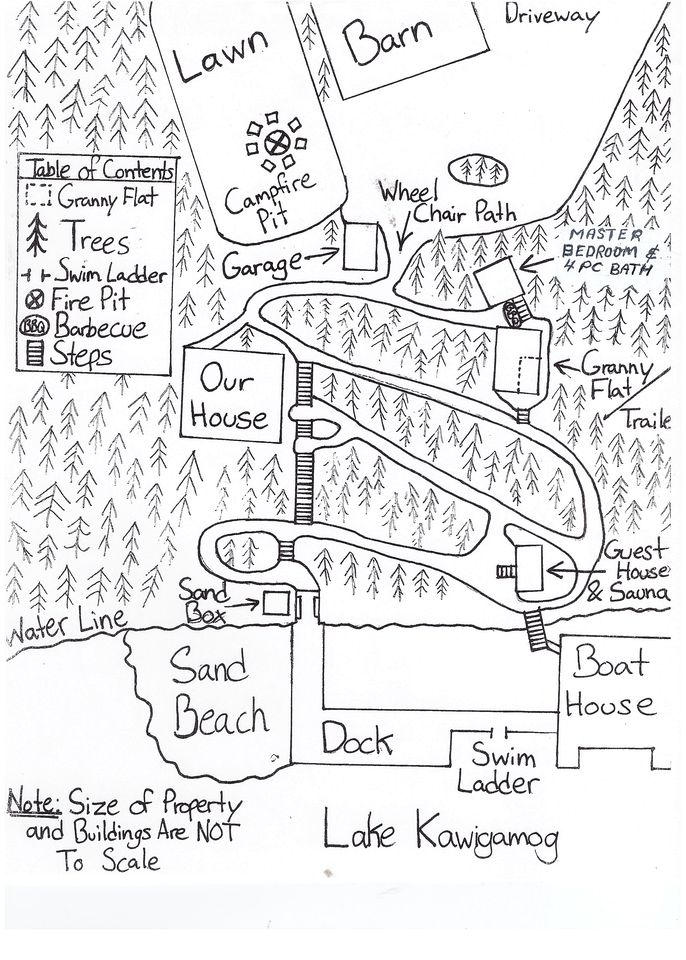 Driveway
Lawn
Barn
Table of Contents
Granny Flat
Trees
Swim Ladder
Fire Pit
BBQ Barbecue
Steps
Campfire
Pit
Wheel
Chair Path
Garage
MASTER
BEDROOM &
4 PC BATH
Our
House
Granny
Flat
Traile
Guest
House
& Sauna
Sand
Box
Water Line
Sand
Beach
Boat
House
Dock
Swim
Ladder
Note: Size of Property
and Buildings Are NOT
To Scale
Lake Kawigamog